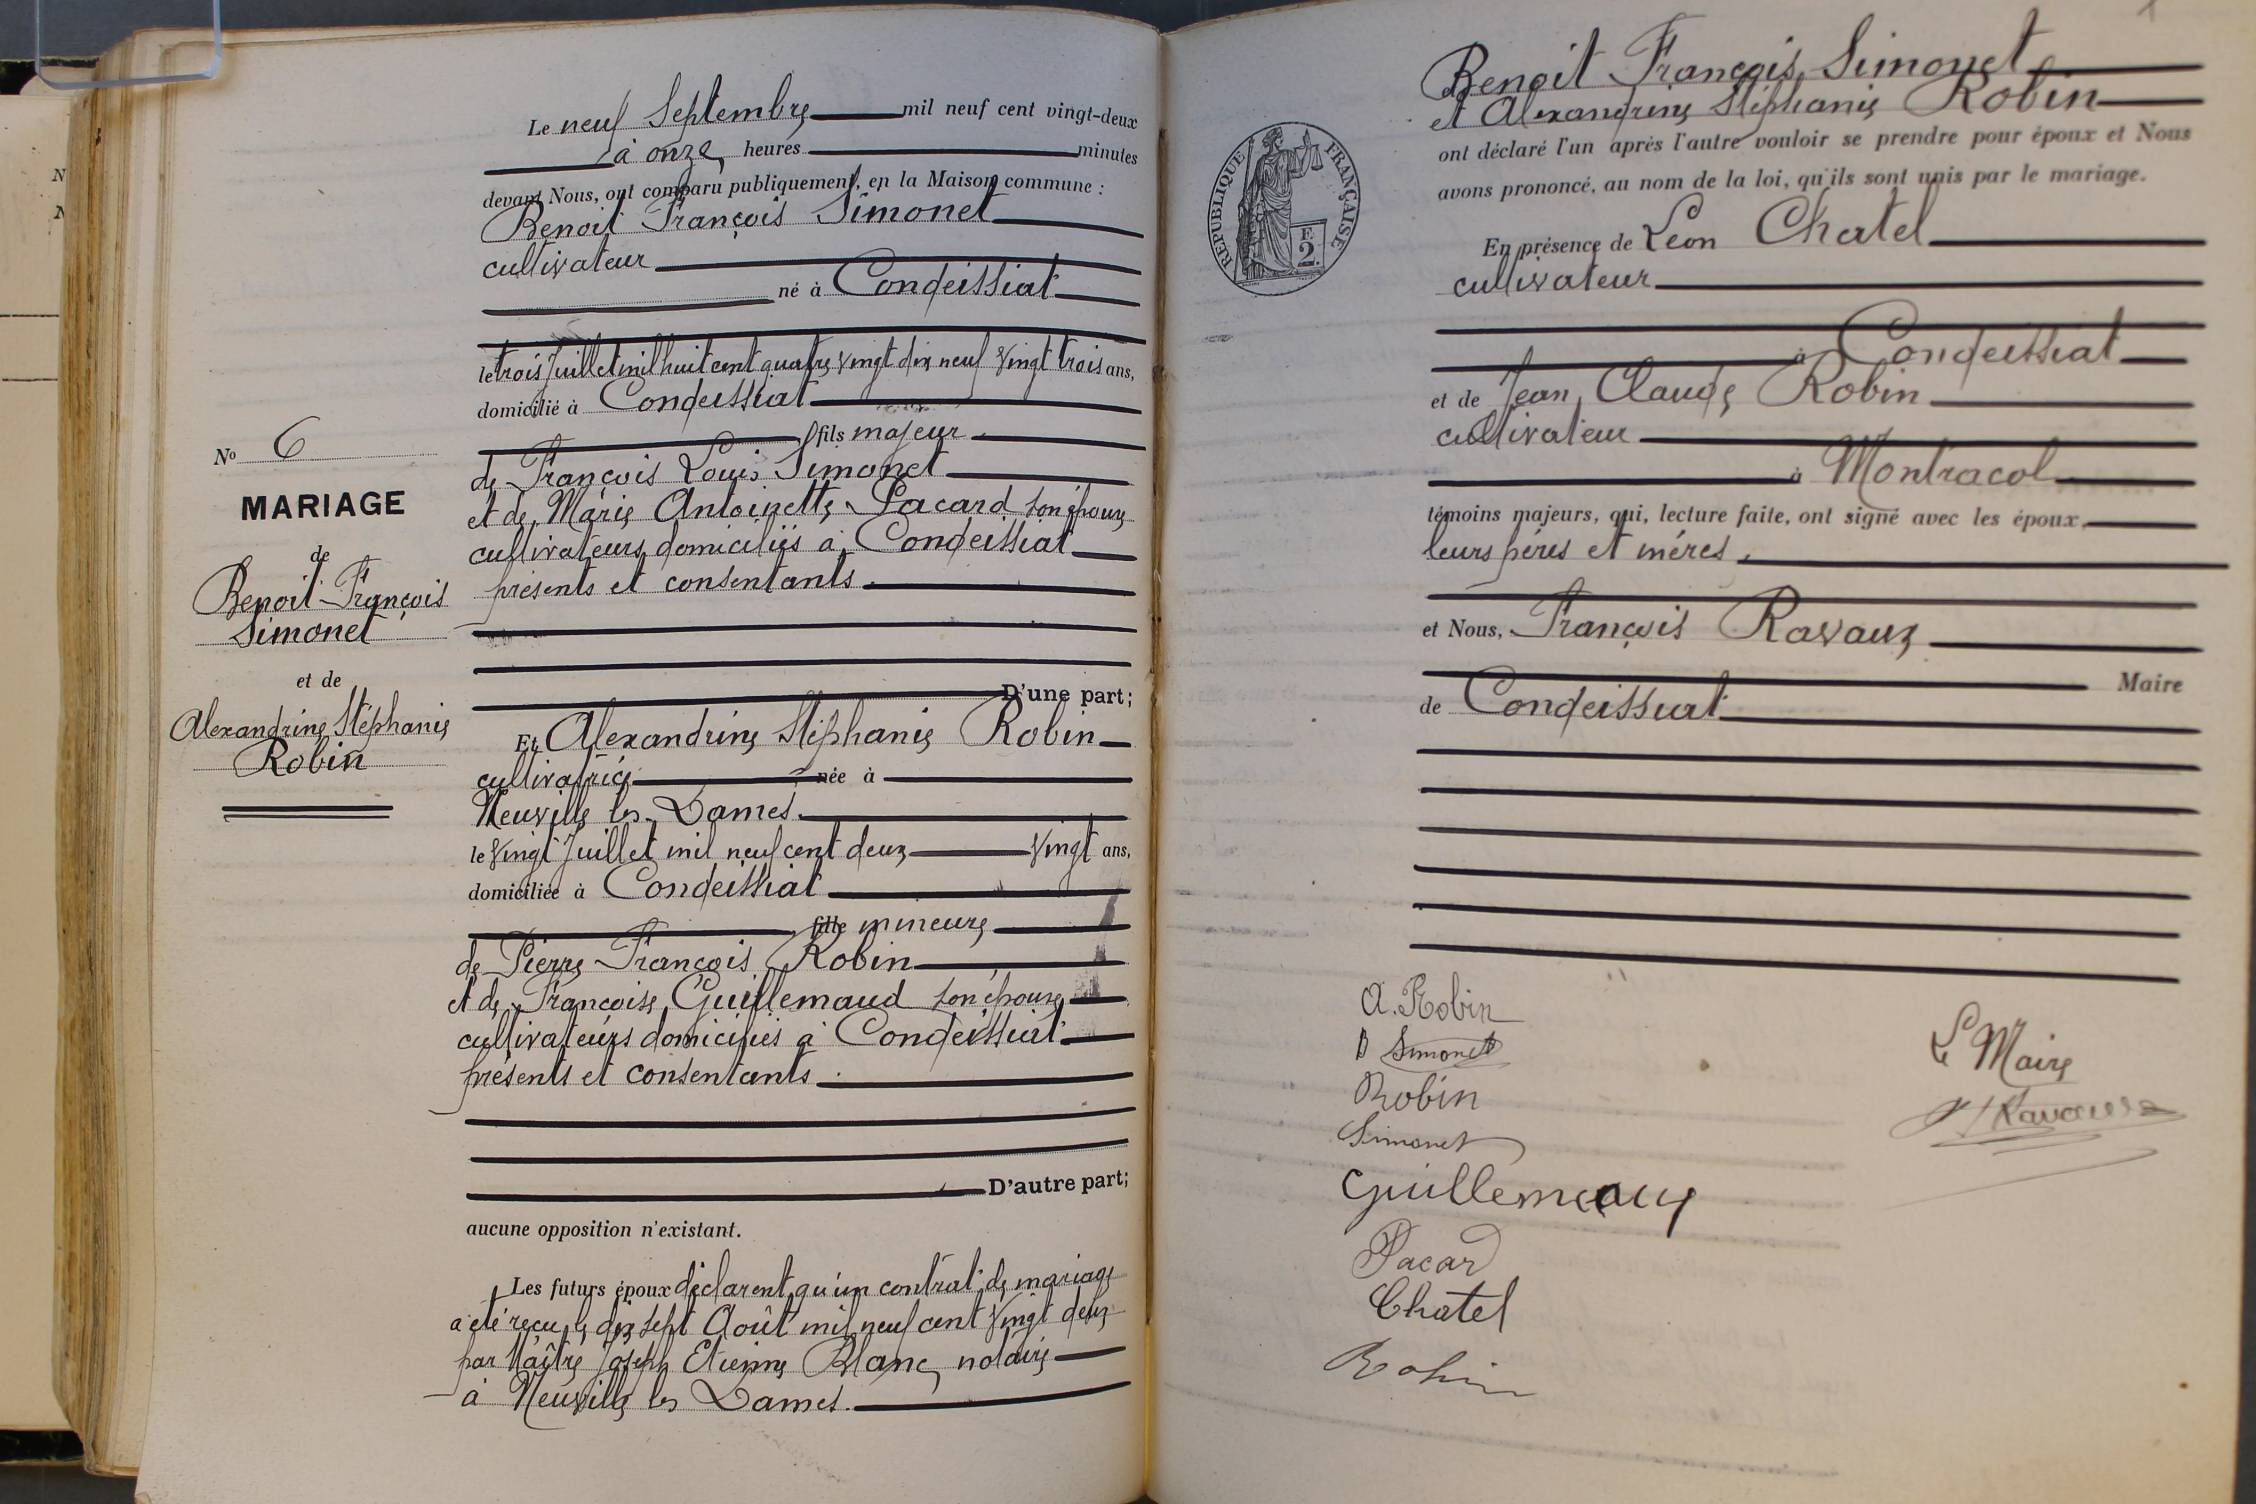 N
N
Le neuf Septembre mil neuf cent vingt-deux
à onze heures minutes
devant Nous, ont comparu publiquement, en la Maison commune :
Benoit François Simonet
cultivateur
né à Condeissiat
le trois Juillet mil huit cent quatre vingt dix neuf vingt trois ans,
domicilié à Condeissiat
fils majeur
de François Louis Simonet
et de Marie Antoinette Pacard son épouse
cultivateurs domiciliés à Condeissiat
présents et consentants.
D'une part;
Et Alexandrine Stéphanie Robin
cultivatrice née à
Neuville les Dames.
le vingt Juillet mil neuf cent deux vingt ans,
domiciliée à Condeissiat
fille mineure
de Pierre François Robin
et de Françoise Guillemaud son épouse
cultivateurs domiciliés à Condeissiat
présents et consentants.
D'autre part;
aucune opposition n'existant.
Les futurs époux déclarent qu'un contrat de mariage
a été reçu le dix sept Août mil neuf cent vingt deux
par Maître Joseph Etienne Blanc, notaire
à Neuville les Dames.
No 6
MARIAGE
de
Benoit François
Simonet
et de
Alexandrine Stéphanie
Robin
RÉPUBLIQUE FRANÇAISE
F.
2.
Benoit François Simonet
et Alexandrine Stéphanie Robin
ont déclaré l'un après l'autre vouloir se prendre pour époux et Nous
avons prononcé, au nom de la loi, qu'ils sont unis par le mariage.
En présence de Léon Chatel
cultivateur
à Condeissiat
et de Jean Claude Robin
cultivateur
à Montracol
témoins majeurs, qui, lecture faite, ont signé avec les époux,
leurs pères et mères,
et Nous, François Ravaux
Maire
de Condeissiat
A. Robin
B Simonet
Robin
Simonet
Guillemaud
Pacard
Chatel
Robin
Le Maire
Ravaux